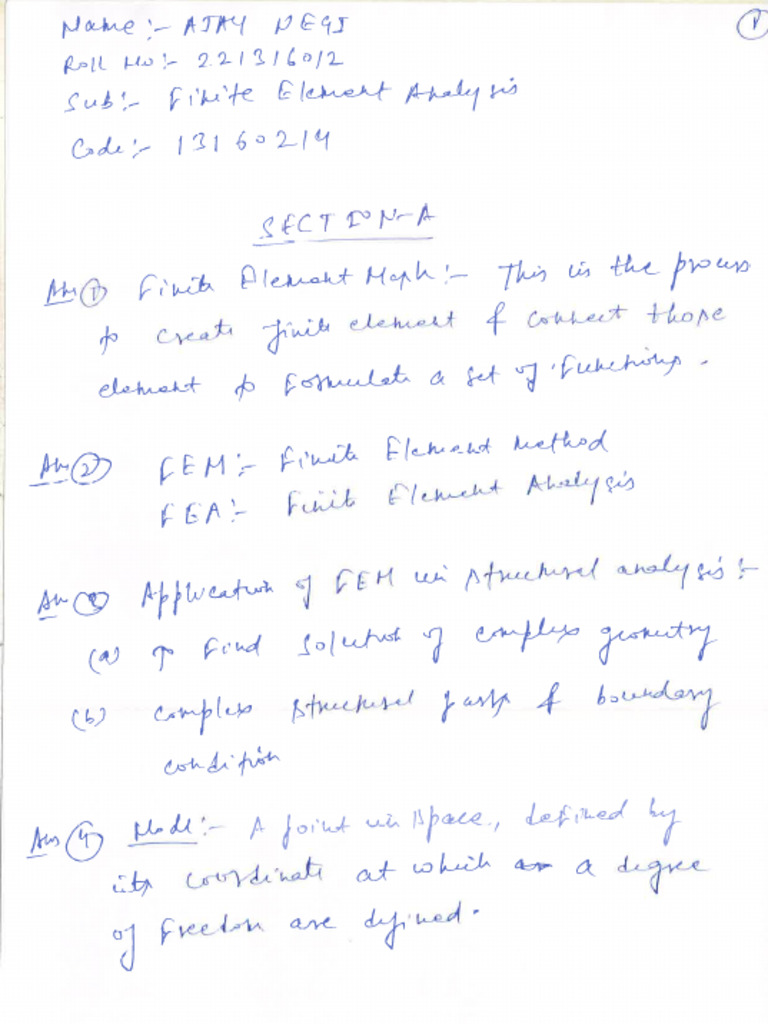 1
Name:- AJAY NEGI
Roll No:- 221316012
Sub:- Finite Element Analysis
Code:- 13160214
SECTION-A
Ans ① Finite Element Mesh:- This is the process
to create finite element & connect those
element to formulate a set of functions.
Ans ② FEM:- Finite Element Method
FEA:- Finite Element Analysis
Ans ③ Application of FEM in structural analysis:-
(a) To Find solution of complex geometry
(b) complex structural & boundary
condition
Ans ④ Node:- A point in space, defined by
its coordinate at which a degree
of freedom are defined.